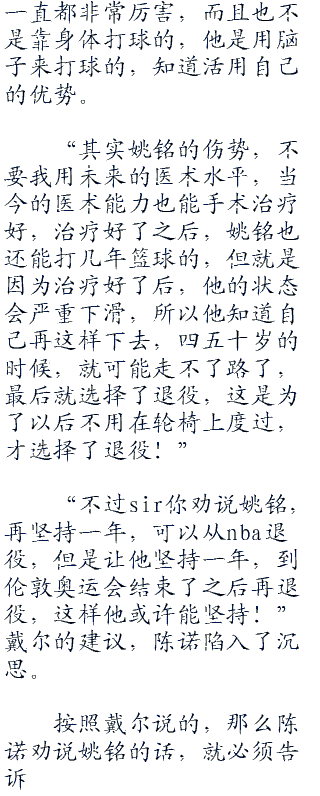 一直都非常厉害，而且也不
是靠身体打球的，他是用脑
子来打球的，知道活用自己
的优势。
“其实姚铭的伤势，不
要我用未来的医术水平，当
今的医术能力也能手术治疗
好，治疗好了之后，姚铭也
还能打几年篮球的，但就是
因为治疗好了后，他的状态
会严重下滑，所以他知道自
己再这样下去，四五十岁的
时候，就可能走不了路了，
最后就选择了退役，这是为
了以后不用在轮椅上度过，
才选择了退役！”
“不过sir你劝说姚铭，
再坚持一年，可以从nba退
役，但是让他坚持一年，到
伦敦奥运会结束了之后再退
役，这样他或许能坚持！”
戴尔的建议，陈诺陷入了沉
思。
按照戴尔说的，那么陈
诺劝说姚铭的话，就必须告
诉